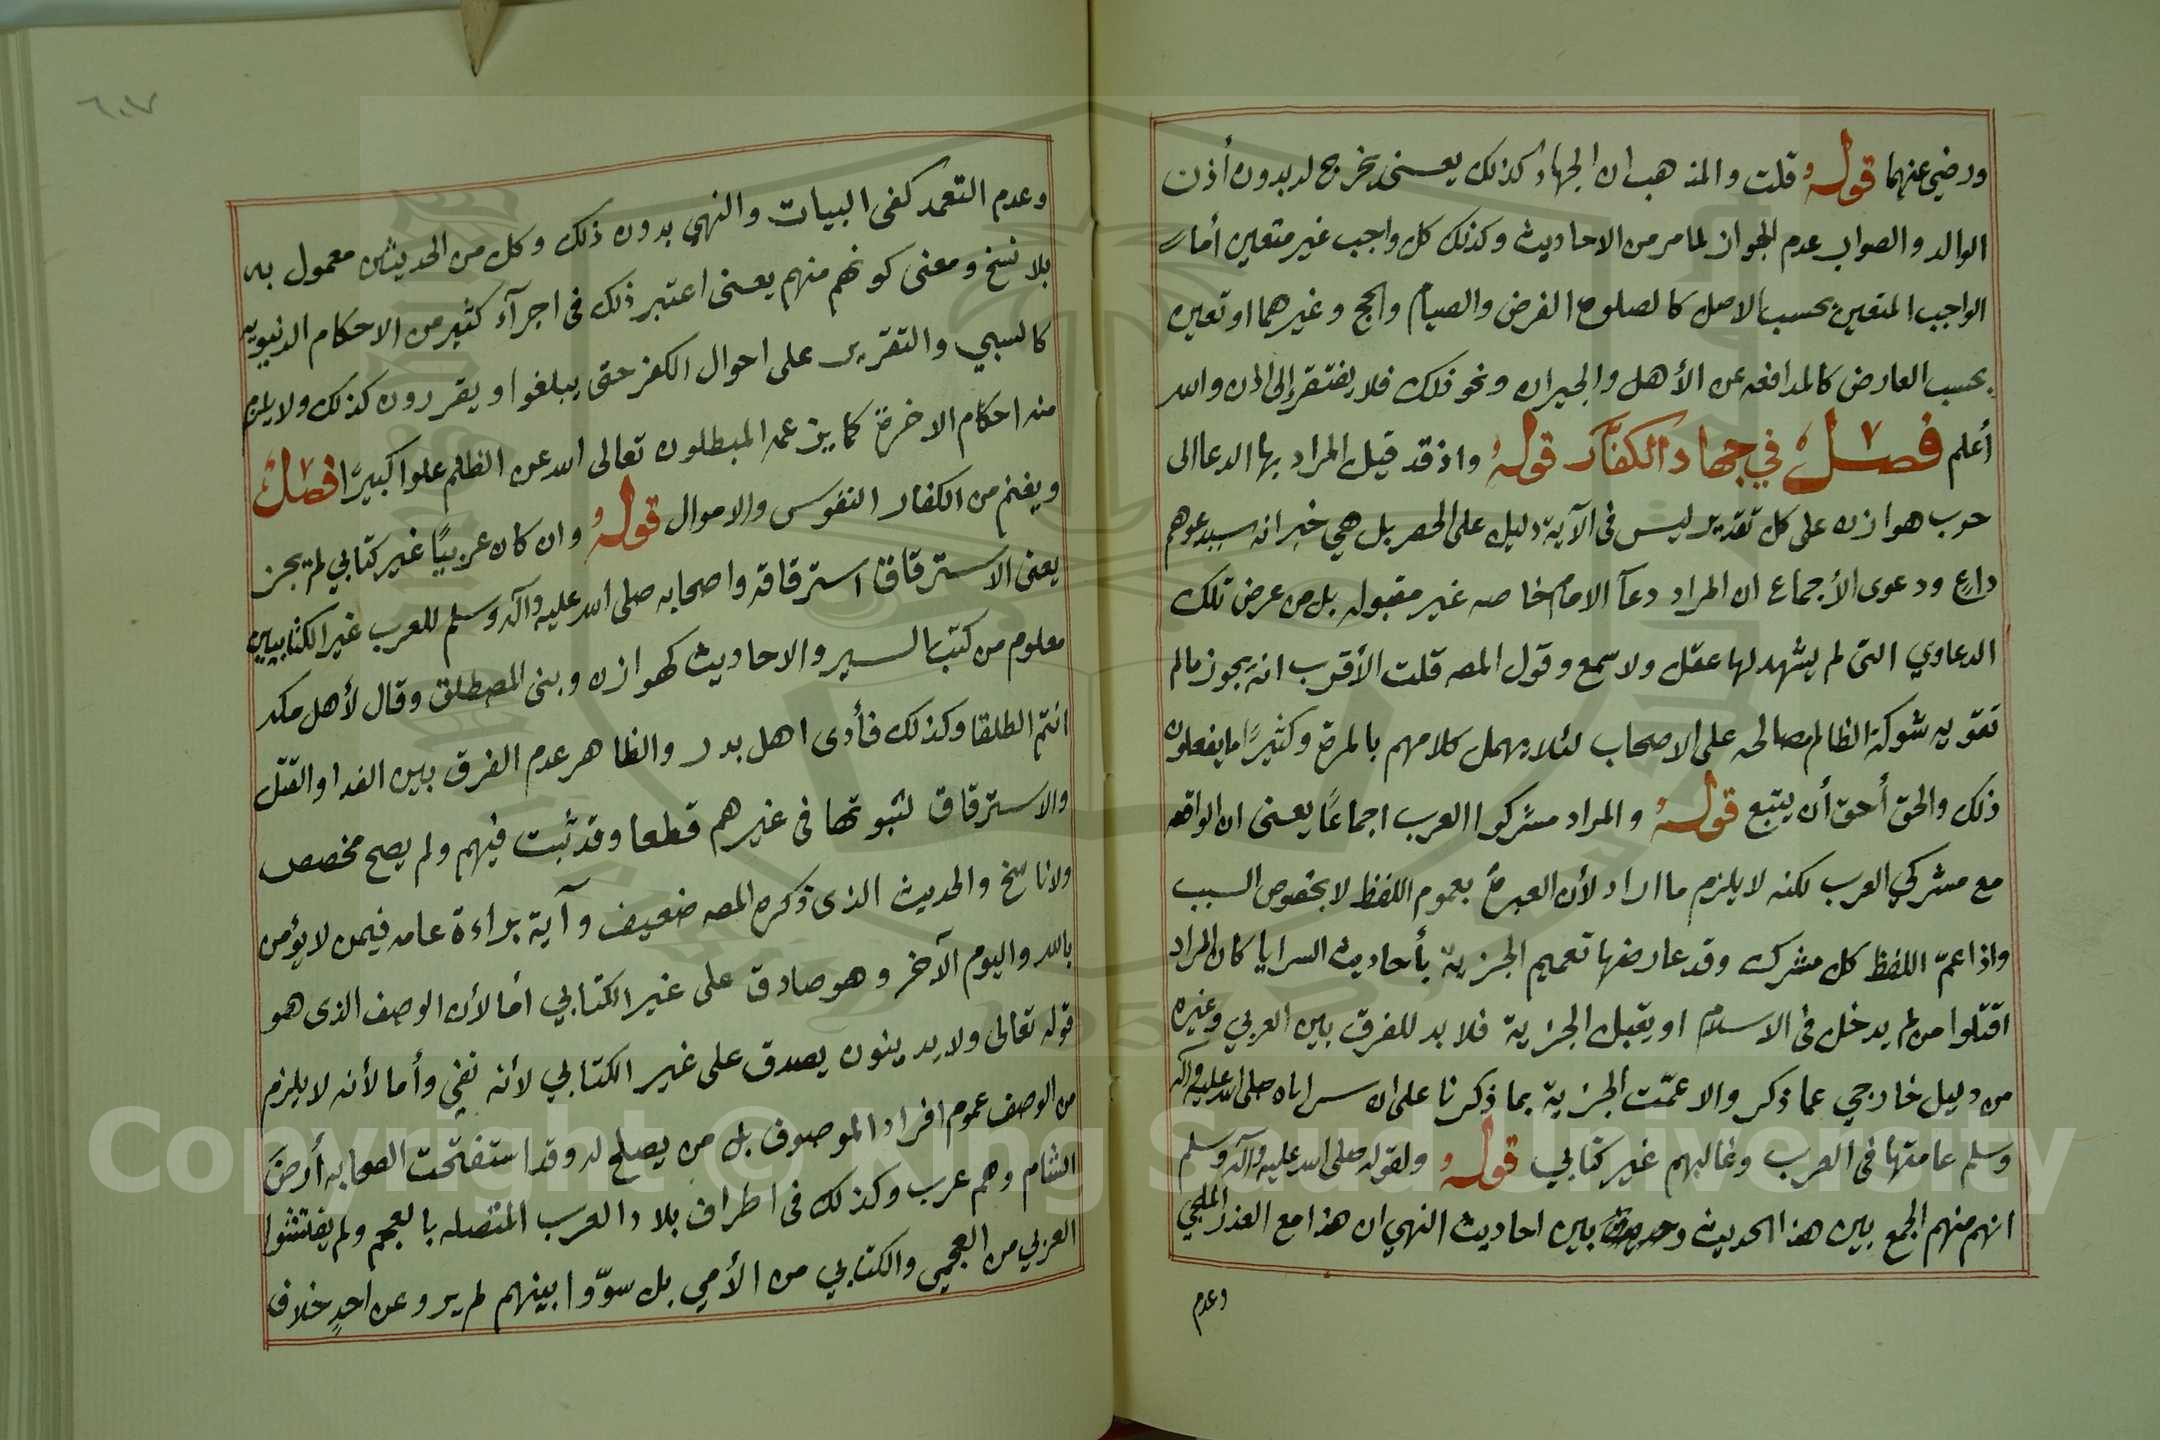 ورضي عنهما قوله قلت والمذهب ان الجهاد كذلك يعنى يخرج له بدون أذن
الوالد والصواب عدم الجواز لما مر من الاحاديث وكذلك كل واجب غير متعين أما
الواجب المتعين بحسب الاصل كالصلوة الفرض والصيام والحج وغيرهما او تعين
بحسب العارض كالمدافعه عن الأهل والجيران ونحو ذلك فلا يفتقر إلى اذن والله
أعلم فصل في جهاد الكفار قوله واذ قد قيل المراد بها الدعا الى
حرب هوازن على كل تقدير ليس فى الآية دليل على الحصر بل هي خبر انه سيدعوهم
داع ودعوى الأجماع ان المراد دعآ الامام خاصه غير مقبوله بل من عرض تلك
الدعاوي التى لم يشهد لها عقل ولا سمع وقول المصه قلت الأقرب انه يجوز مالم
تقويه شوكة الظالم مصالحه على الاصحاب لئلا يهمل كلامهم بالمرة وكثيرًا ما يفعلون
ذلك والحق أحق أن يتبع قوله والمراد مشركوا العرب اجماعًا يعنى ان الواقعه
مع مشركي العرب لكنه لا يلزم ما اراد لأن العبرة بعموم اللفظ لا بخصوص السبب
واذا عمّ اللفظ كل مشرك وقد عارضها تعميم الجزية بأحاديث السرايا كان المراد
اقتلوا من لم يدخل فى الاسلام او يقبل الجزية فلا بد للفرق بين العربي وغيره
من دليل خارجي عما ذكر والا عمّت الجزية بما ذكرنا على ان سراياه صلى الله عليه وآله
وسلم عامتها فى العرب وغالبهم غير كتابي قوله ولقوله صلى الله عليه وآله وسلم
انهم منهم الجمع بين هذا الحديث وبين احاديث النهي ان هذا مع العذر الملجي
وعدم
٦٠٧
وعدم التعمد كفى البيات والنهي بدون ذلك وكل من الحديثين معمول به
بلا نسخ ومعنى كونهم منهم يعنى اعتبر ذلك فى اجرآء كثير من الاحكام الدنيويه
كالسبي والتقرير على احوال الكفر حتى يبلغوا ويقررون كذلك ولا يلزم
منه احكام الاخرة كما يزعمه المبطلون تعالى الله عن الظلم علوا كبيرًا فصل
ويغنم من الكفار النفوس والاموال قوله وان كان عربيًا غير كتابي لم يجز
يعنى الاسترقاق استرقاقه واصحابه صلى الله عليه وآله وسلم للعرب غير الكتابيين
معلوم من كتب السير والاحاديث كهوازن وبنى المصطلق وقال لأهل مكه
انتم الطلقا وكذلك فأدى اهل بدر والظاهر عدم الفرق بين الفدا والقتل
والاسترقاق لثبوتها فى غيرهم قطعا وقد ثبت فيهم ولم يصح مخصص
ولا ناسخ والحديث الذى ذكره المصه ضعيف وآية براءة عامه فيمن لا يؤمن
بالله واليوم الآخر وهو صادق على غير الكتابي أما لأن الوصف الذى هو
قوله تعالى ولا يدينون يصدق على غير الكتابي لأنه نفي وأما لأنه لا يلزم
من الوصف عموم افراد الموصوف بل من يصلح له وقد استفتحت الصحابه أرض
الشام وهم عرب وكذلك فى اطراف بلاد العرب المتصله بالعجم ولم يفتشوا
العربي من العجمي والكتابي من الأمي بل سوّوا بينهم لم يرو عن احدٍ خلاف
Copyright © King Saud University